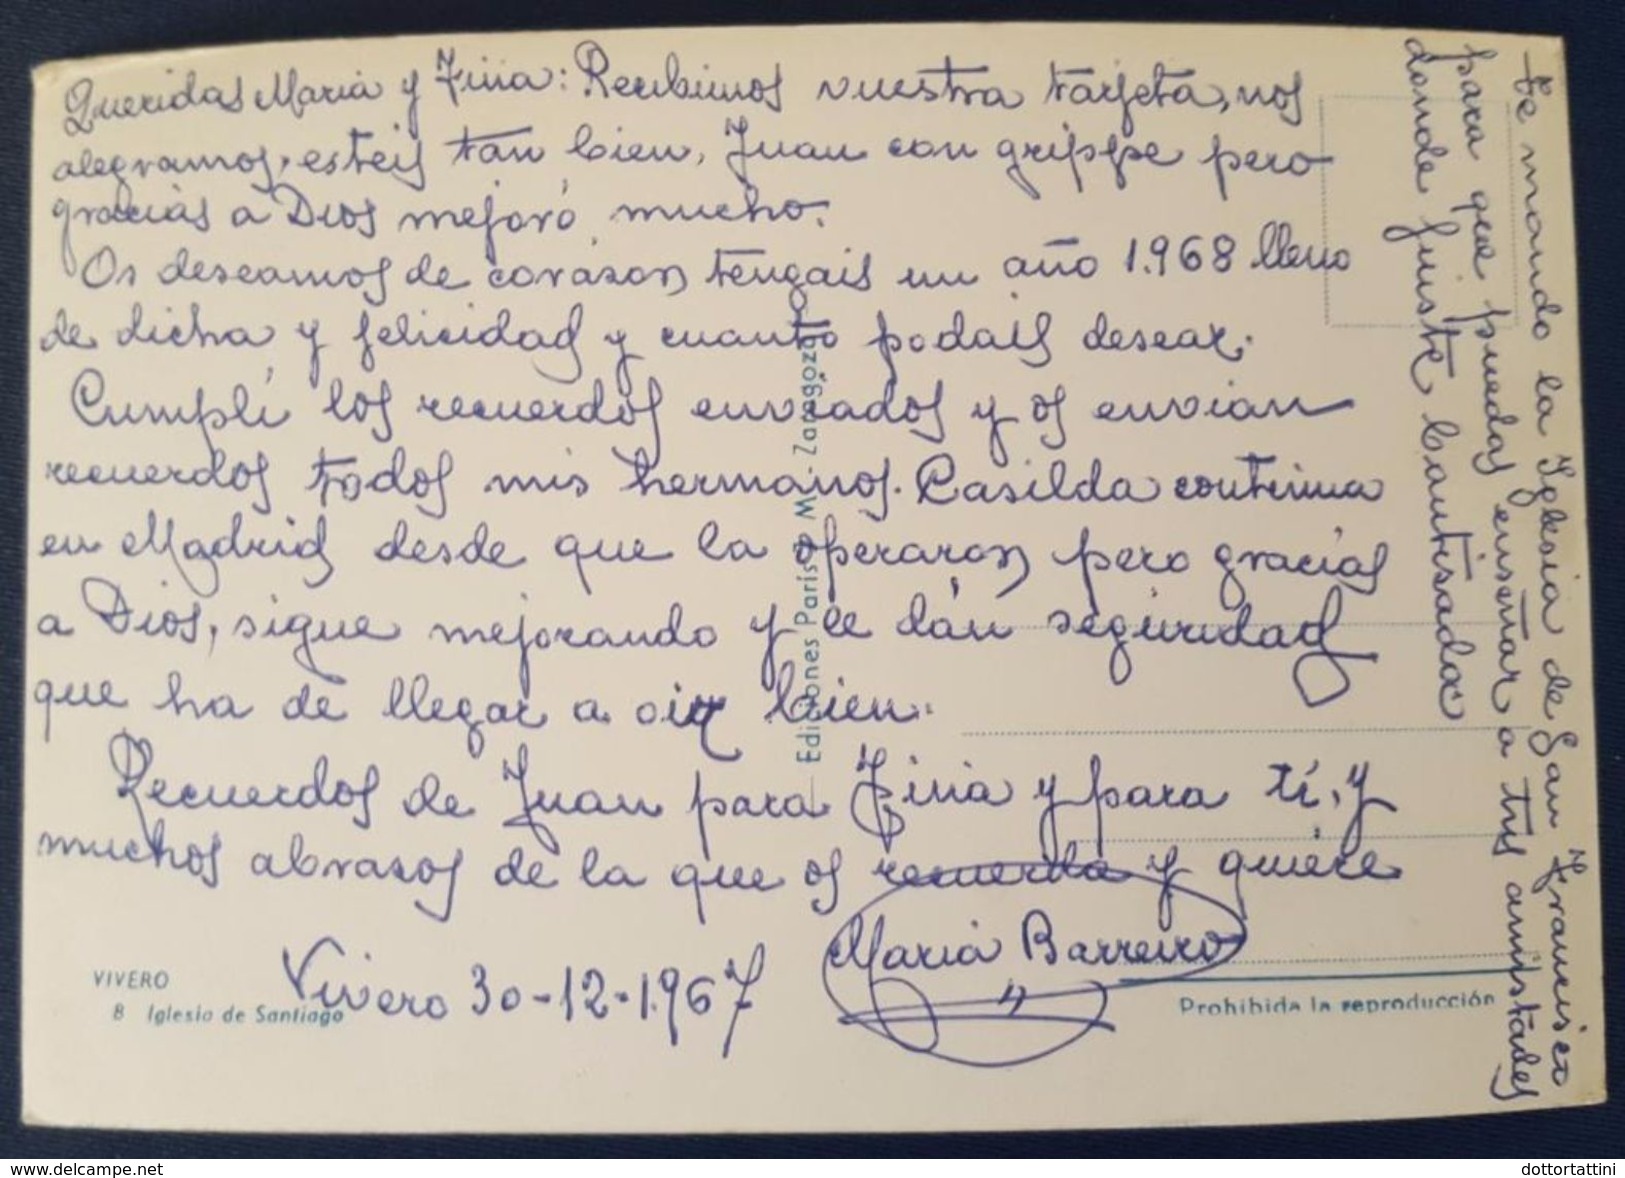 Queridas Maria y Fina: Recibimos vuestra tarjeta, nos
alegramos, esteis tan bien, Juan con grippe pero
gracias a Dios mejoró mucho.
Os deseamos de corason tengais un año 1.968 lleno
de dicha y felicidad y cuanto podais desear.
Cumplí los recuerdos enviados y os envian
recuerdos todos mis hermanos. Casilda continua
en Madrid desde que la operaron pero gracias
a Dios, sigue mejorando y le dán seguridad
que ha de llegar a oir bien.
Recuerdos de Juan para Fina y para tí, y
muchos abrasos de la que os recuerda y quiere
Maria Barreiro
Vivero 30-12-1.967
VIVERO
8 Iglesia de Santiago
Ediciones París M. - Zaragoza
Prohibida la reproducción
te mando la Iglesia de San Francisco
para que puedas enseñar a tus amistades
donde fuiste bautisada
www.delcampe.net
dottortattini